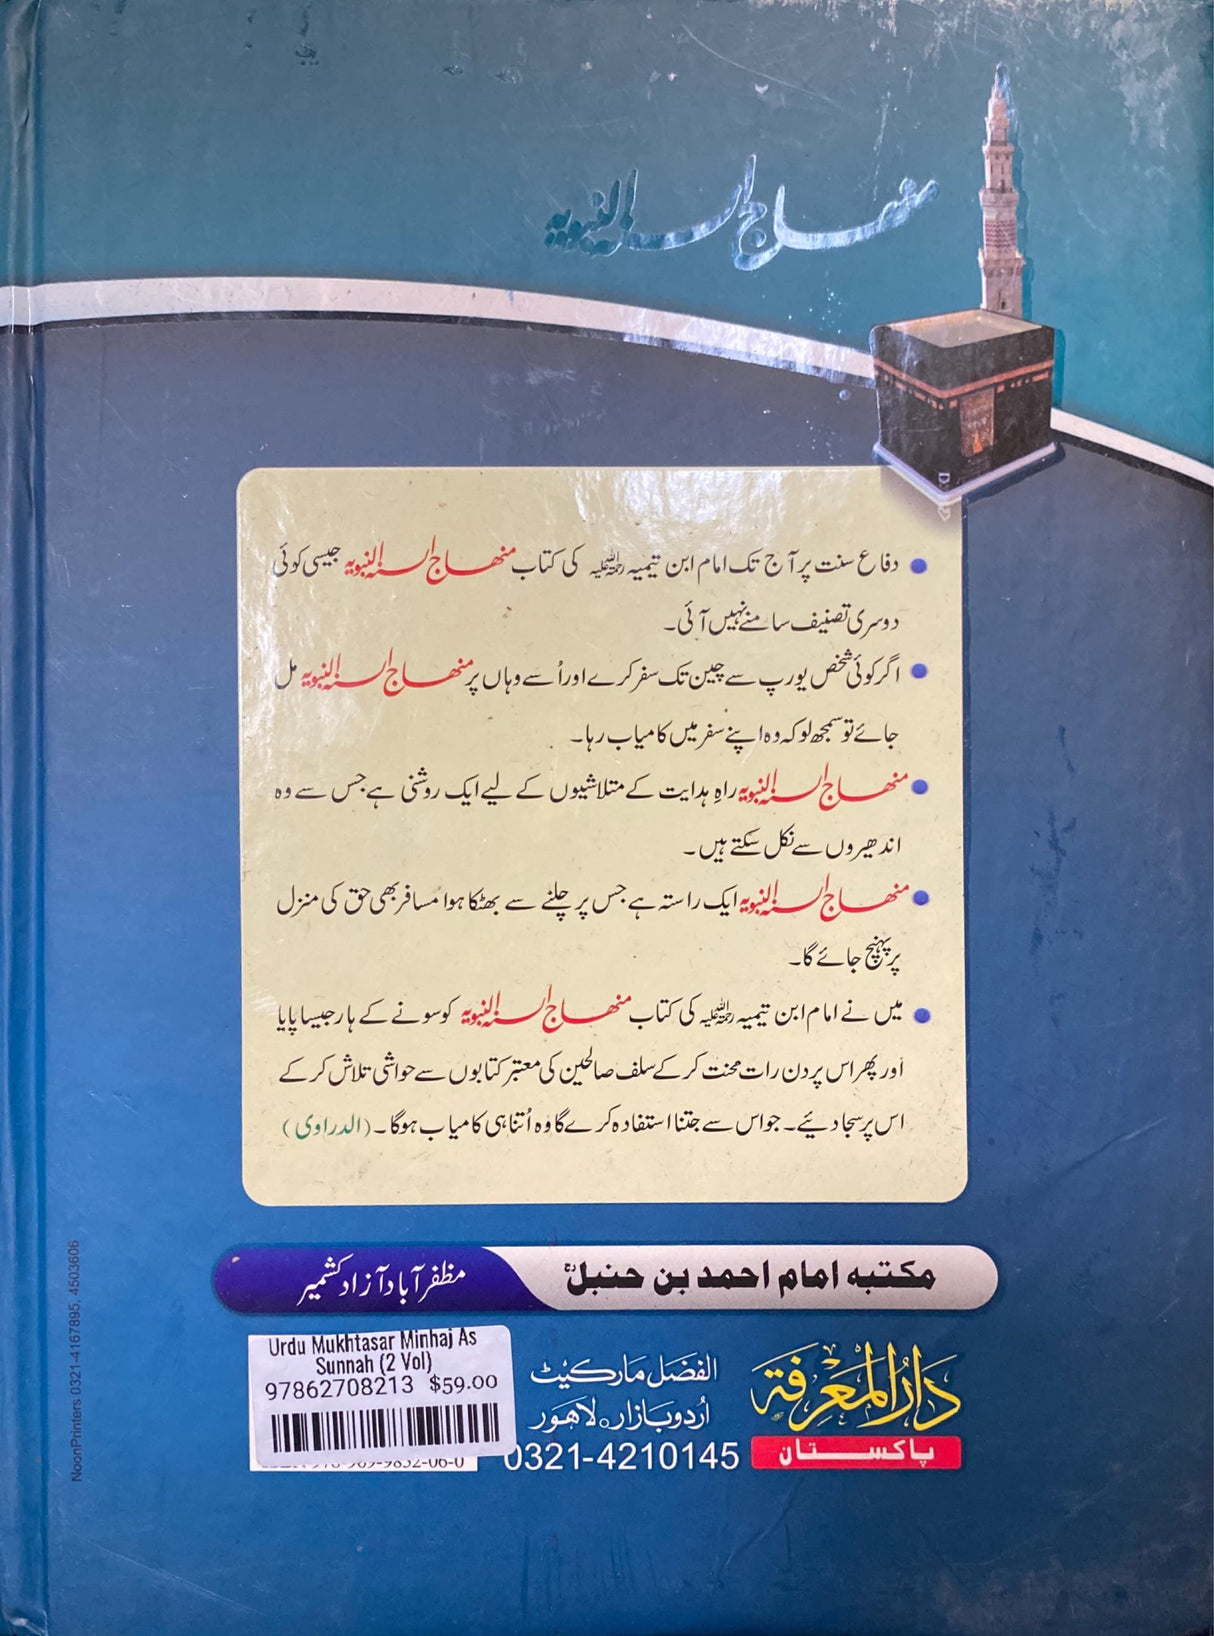 منهاج السنة النبویہ
دفاع سنت پر آج تک امام ابن تیمیہ رحمۃ اللہ علیہ کی کتاب منهاج السنۃ النبویہ جیسی کوئی
دوسری تصنیف سامنے نہیں آئی۔
اگر کوئی شخص یورپ سے چین تک سفر کرے اور اُسے وہاں پر منهاج السنۃ النبویہ مل
جائے تو سمجھ لو کہ وہ اپنے سفر میں کامیاب رہا۔
منهاج السنۃ النبویہ راہِ ہدایت کے متلاشیوں کے لیے ایک روشنی ہے جس سے وہ
اندھیروں سے نکل سکتے ہیں۔
منهاج السنۃ النبویہ ایک راستہ ہے جس پر چلنے سے بھٹکا ہوا مسافر بھی حق کی منزل
پر پہنچ جائے گا۔
میں نے امام ابن تیمیہ رحمۃ اللہ علیہ کی کتاب منهاج السنۃ النبویہ کو سونے کے ہار جیسا پایا
اور پھر اس پر دن رات محنت کر کے سلف صالحین کی معتبر کتابوں سے حواشی تلاش کر کے
اس پر سجا دیئے۔ جو اس سے جتنا استفادہ کرے گا وہ اُتنا ہی کامیاب ہوگا۔ (الدراوی)
مکتبہ امام احمد بن حنبلؒ مظفر آباد آزاد کشمیر
دَارُالمَعْرِفَة
پاکستان
الفضل مارکیٹ
اُردو بازار ○ لاهور
0321-4210145
Urdu Mukhtasar Minhaj As
Sunnah (2 Vol)
97862708213 $59.00
NoonPrinters 0321-4167895, 4503606